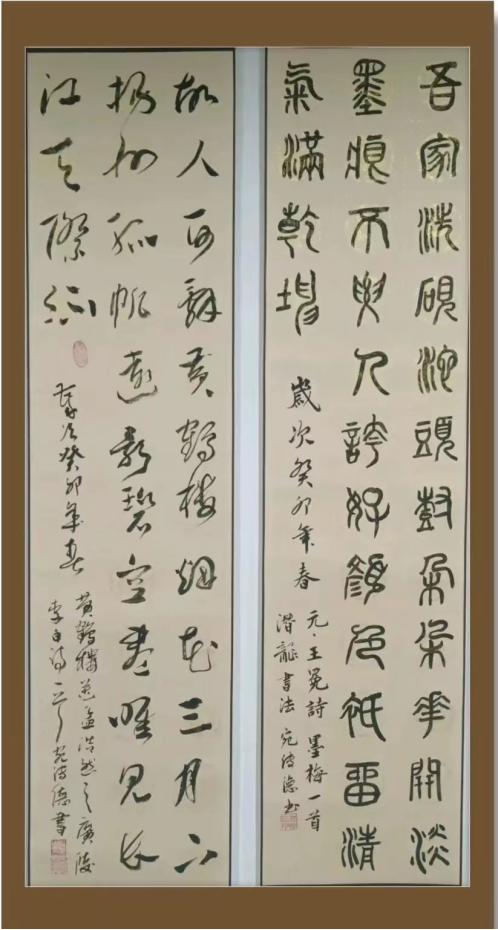 吾家洗硯池頭樹朵朵華開淡
墨痕不要人誇好顏色祗畱清
氣滿乾坤
歲次癸卯年春
元·王冕詩 墨梅一首
潛龍書法 宛波德書
故人西辭黃鶴樓烟花三月下
揚州孤帆遠影碧空盡唯見長
江天際流
歲次癸卯年春
黃鶴樓送孟浩然之廣陵
李白詩一首 宛波德書